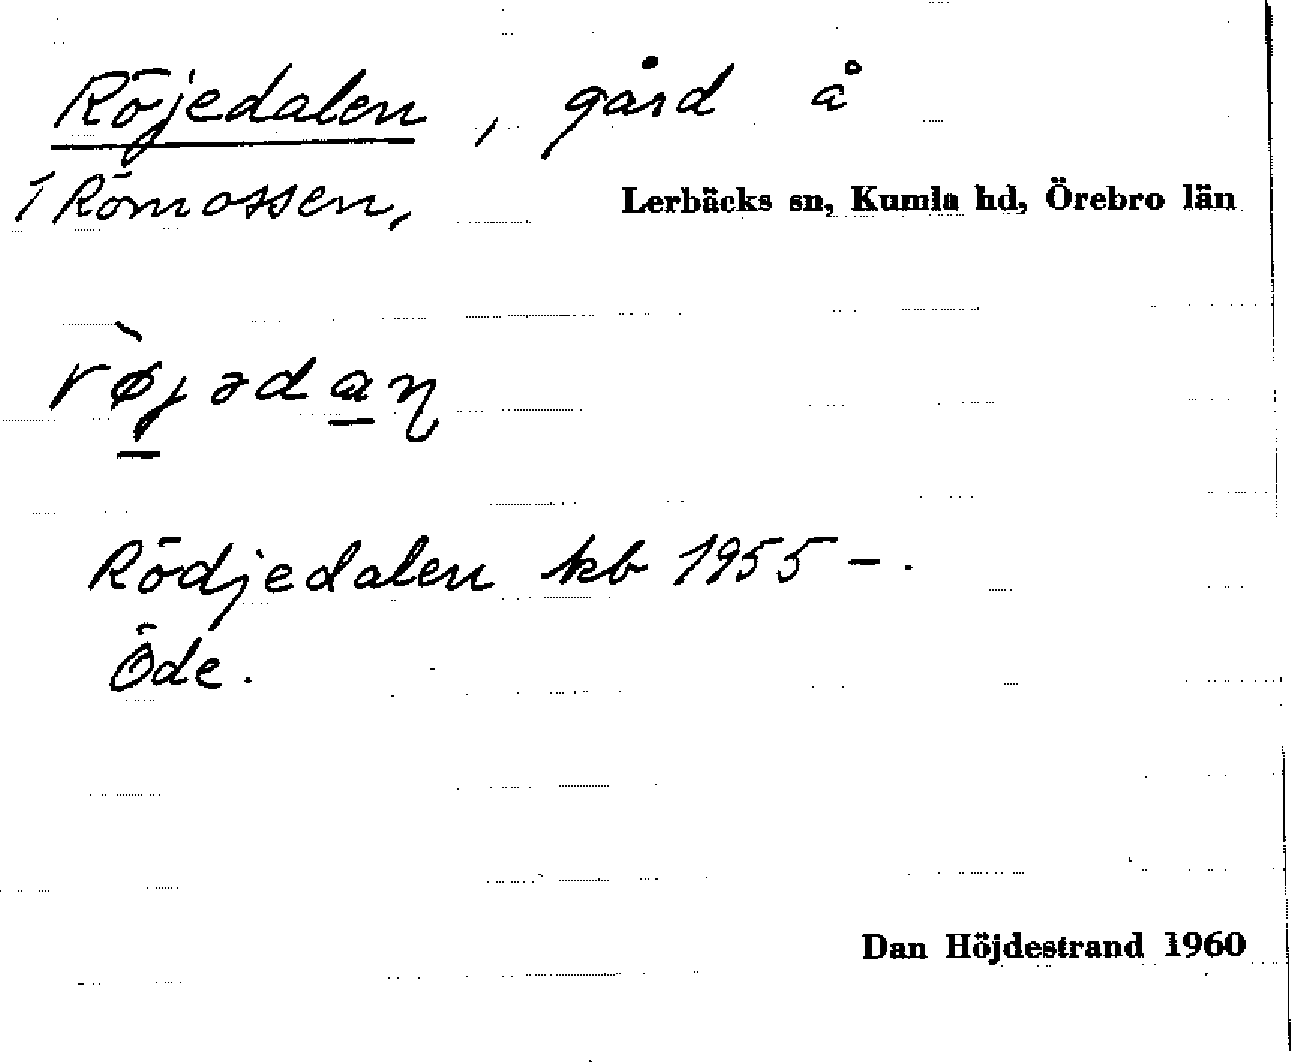 Röjedalen, gård å
1 Römossen, Lerbäcks sn, Kumla hd, Örebro län
rø̀jədaŋ
Rödjedalen kb 1955 – .
Öde.
Dan Höjdestrand 1960